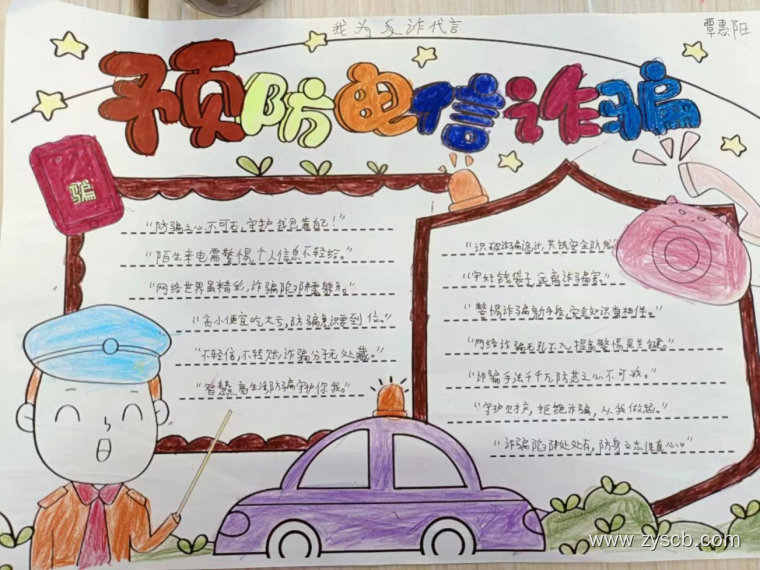 我为反诈代言
覃惠阳
预防电信诈骗
骗
“防骗之心不可无,守护钱包靠自己!”
“陌生来电需警惕,个人信息不轻给。”
“网络世界虽精彩,诈骗陷阱需
“贪小便宜吃大亏,防骗意识要到位。”
“不轻信,不转账,诈骗分子无处藏。”
“智慧 生活,防骗守护你我。”
“识破诈骗 ,共筑安全防线
“守好钱袋子,远离诈骗害。”
“警惕诈骗新手段,安全知识 相伴。”
“网络诈骗无孔不入,提高警惕是关键。”
“诈骗手法千千万,防范之心不可
“守护财产,拒绝诈骗,从我做起。”
“诈骗陷阱处处有,防
www.zyscb.com